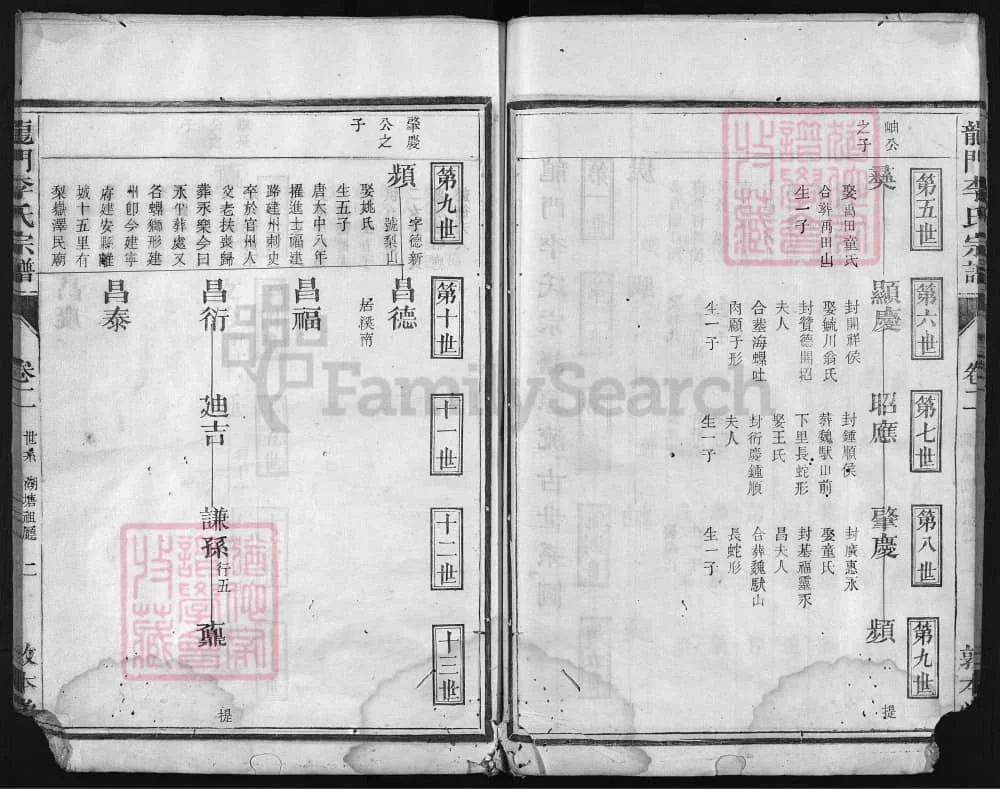 龍門李氏宗譜
卷二
敦本堂
第五世
第六世
第七世
第八世
第九世
岫公
之子
彝
娶萬田童氏
合葬萬田山
生一子
顯慶
封開祥侯
娶毓川翁氏
封贊德開招
夫人
合墓海螺吐
肉顧子形
生一子
昭應
封鍾順侯
葬魏馱山前
下里長蛇形
娶王氏
封衍慶鍾順
夫人
生一子
肇慶
封廣惠永
娶童氏
封基福靈永
昌夫人
合葬魏馱山
長蛇形
生一子
頻
提
第九世
第十世
十一世
十二世
十三世
肇慶
公之
子
頻
字德新
號梨山
娶姚氏
生五子
唐大中八年
擢進士福建
路建州刺史
卒於官州人
父老扶喪歸
葬永樂今曰
永平葬處又
名螺獅形建
州卽今建寧
府建安縣離
城十五里有
梨嶽澤民廟
昌德
居溪南
昌福
昌衍
廸吉
謙孫
行五
鼐
昌泰
提
龍門李氏宗譜
卷二
世系
湖塘祖廳
二
敦本堂
FamilySearch